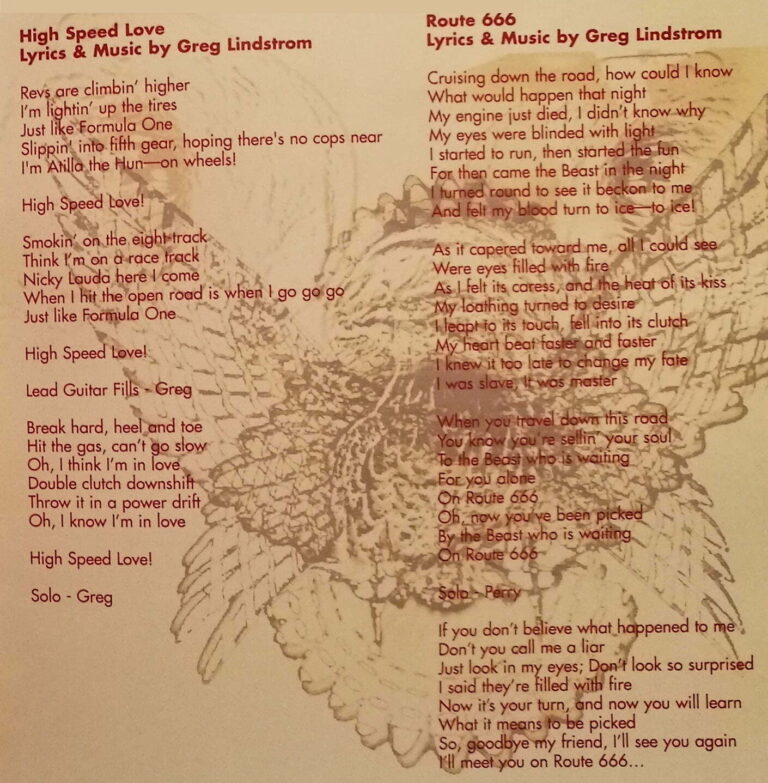 High Speed Love
Lyrics & Music by Greg Lindstrom
Revs are climbin' higher
I'm lightin' up the tires
Just like Formula One
Slippin' into fifth gear, hoping there's no cops near
I'm Atilla the Hun—on wheels!
High Speed Love!
Smokin' on the eight-track
Think I'm on a race track
Nicky Lauda here I come
When I hit the open road is when I go go go
Just like Formula One
High Speed Love!
Lead Guitar Fills - Greg
Break hard, heel and toe
Hit the gas, can't go slow
Oh, I think I'm in love
Double clutch downshift
Throw it in a power drift
Oh, I know I'm in love
High Speed Love!
Solo - Greg
Route 666
Lyrics & Music by Greg Lindstrom
Cruising down the road, how could I know
What would happen that night
My engine just died, I didn't know why
My eyes were blinded with light
I started to run, then started the fun
For then came the Beast in the night
I turned round to see it beckon to me
And felt my blood turn to ice—to ice!
As it capered toward me, all I could see
Were eyes filled with fire
As I felt its caress, and the heat of its kiss
My loathing turned to desire
I leapt to its touch, fell into its clutch
My heart beat faster and faster
I knew it too late to change my fate
I was slave, It was master
When you travel down this road
You know you're sellin' your soul
To the Beast who is waiting
For you alone
On Route 666
Oh, now you've been picked
By the Beast who is waiting
On Route 666
Solo - Perry
If you don't believe what happened to me
Don't you call me a liar
Just look in my eyes; Don't look so surprised
I said they're filled with fire
Now it's your turn, and now you will learn
What it means to be picked
So, goodbye my friend, I'll see you again
I'll meet you on Route 666...